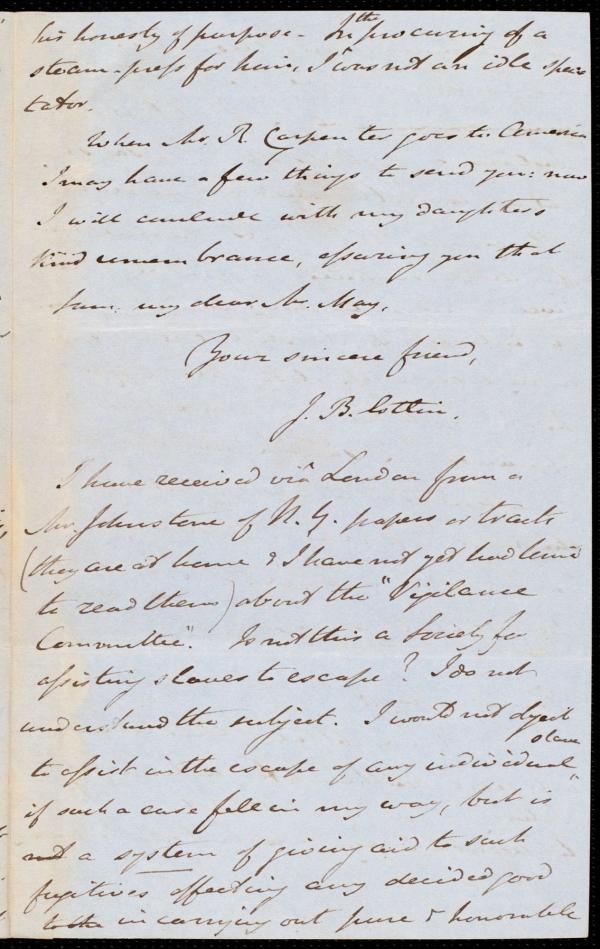 his honesty of purpose - In the procuring of a
steam-press for him, I was not an idle spec-
tator.
When Mr. R. Carpenter goes to America
I may have a few things to send you: now
I will conclude with my daughter's
kind remembrance, assuring you that
I am, my dear Mr. May,
Your sincere friend,
J. B. Estlin.
I have received viâ London from a
Mr. Johnstone of N. Y. papers or tracts
(they are at home & I have not yet had time
to read them) about the "Vigilance
Committee". Is not this a Society for
assisting slaves to escape? I do not
understand the subject. I would not object
to assist in the escape of any individual slave
if such a case fell in my way, but is
not a system of giving aid to such
fugitives effecting any decided good
in carrying out pure & honorable